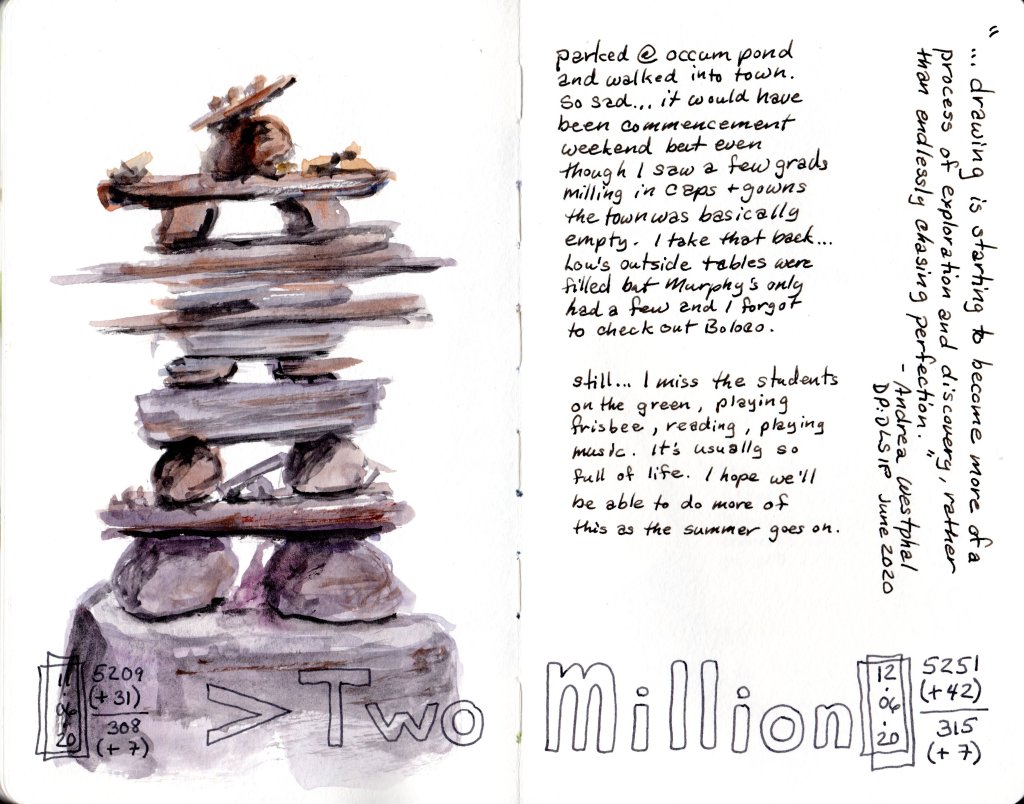 parked @ occum pond
and walked into town.
So sad... it would have
been commencement
weekend but even
though I saw a few grads
milling in caps + gowns
the town was basically
empty. I take that back...
Lou's outside tables were
filled but Murphy's only
had a few and I forgot
to check out Boloco.
still... I miss the students
on the green, playing
frisbee, reading, playing
music. It's usually so
full of life. I hope we'll
be able to do more of
this as the summer goes on.
"... drawing is starting to become more of a
process of exploration and discovery, rather
than endlessly chasing perfection."
- Andrea Westphal
DP:DLSIP June 2020
11
.
06
.
20
5209
(+31)
308
(+7)
>Two Million
12
.
06
.
20
5251
(+42)
315
(+7)